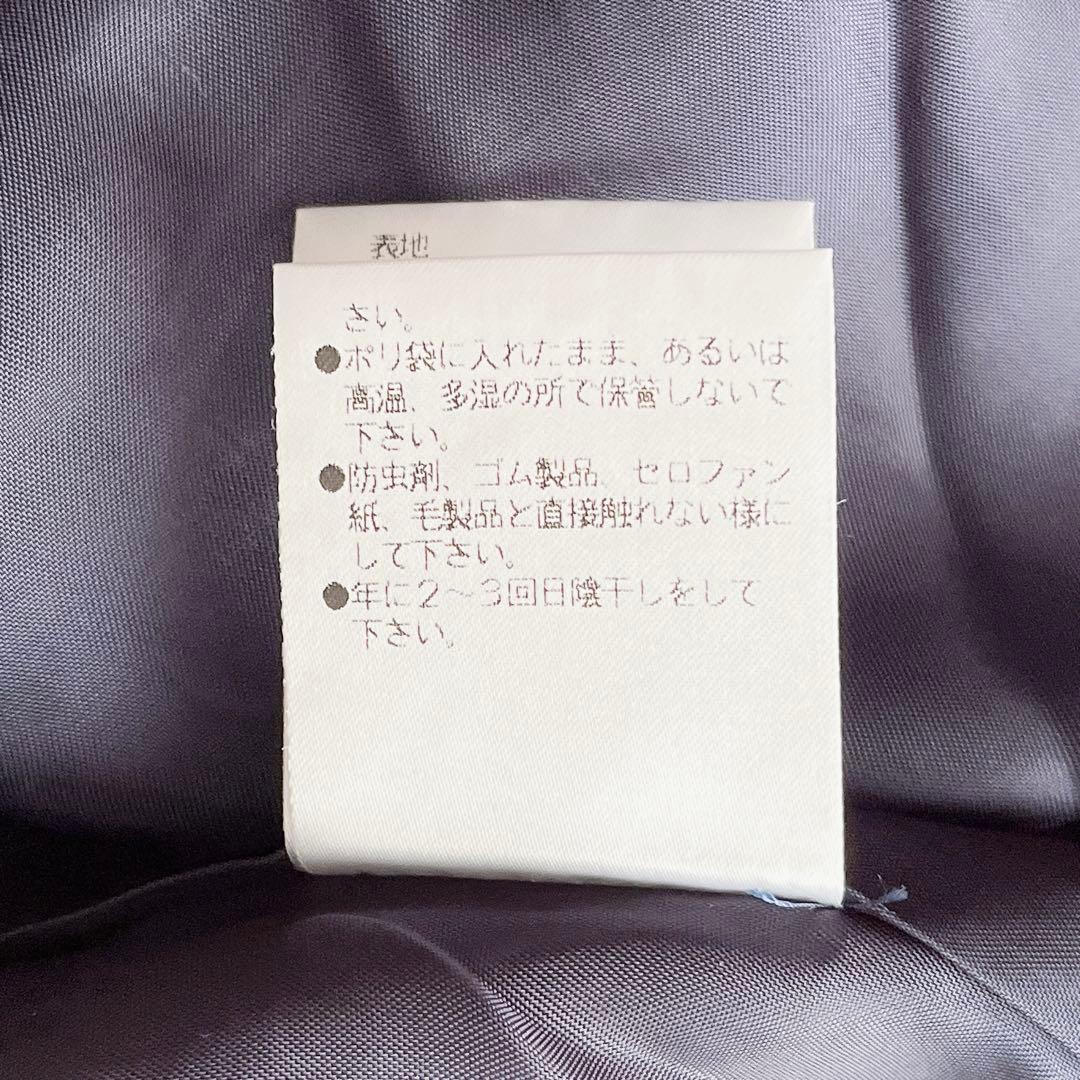 表地
さい。
●ポリ袋に入れたまま、あるいは
高温、多湿の所で保管しないで
下さい。
●防虫剤、ゴム製品、セロファン
紙、毛製品と直接触れない様に
して下さい。
●年に2〜3回日陰干しをして
下さい。